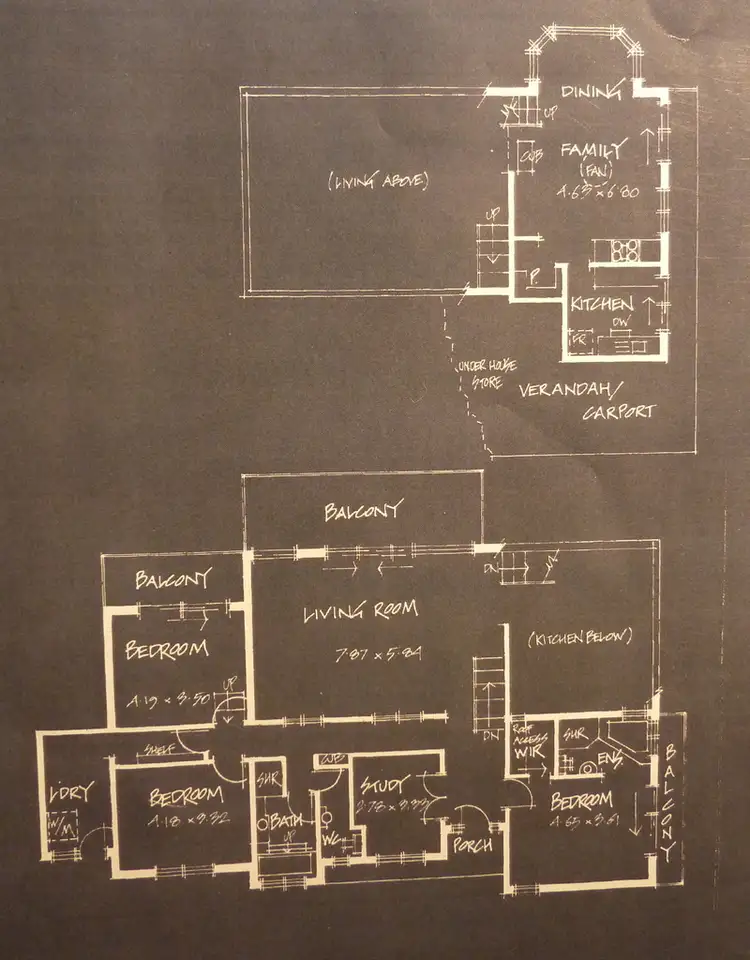 DINING
UP
FAMILY
CUB
(FAN)
(LIVING ABOVE)
4.63 x 6.80
UP
P.
KITCHEN
DW
FR
UNDER HOUSE
STORE
VERANDAH/
CARPORT
BALCONY
DN
BALCONY
LIVING ROOM
(KITCHEN BELOW)
BEDROOM
7.87 x 5.84
UP
4.19 x 3.50
DN
ROOF
ACCESS
WIR
SHR
ENS
SHELF
CUB
L'DRY
BEDROOM
4.18 x 3.32
SHR
STUDY
2.78 x 3.33
BEDROOM
4.65 x 3.61
BALCONY
W/M
BATH
UP
WC
PORCH